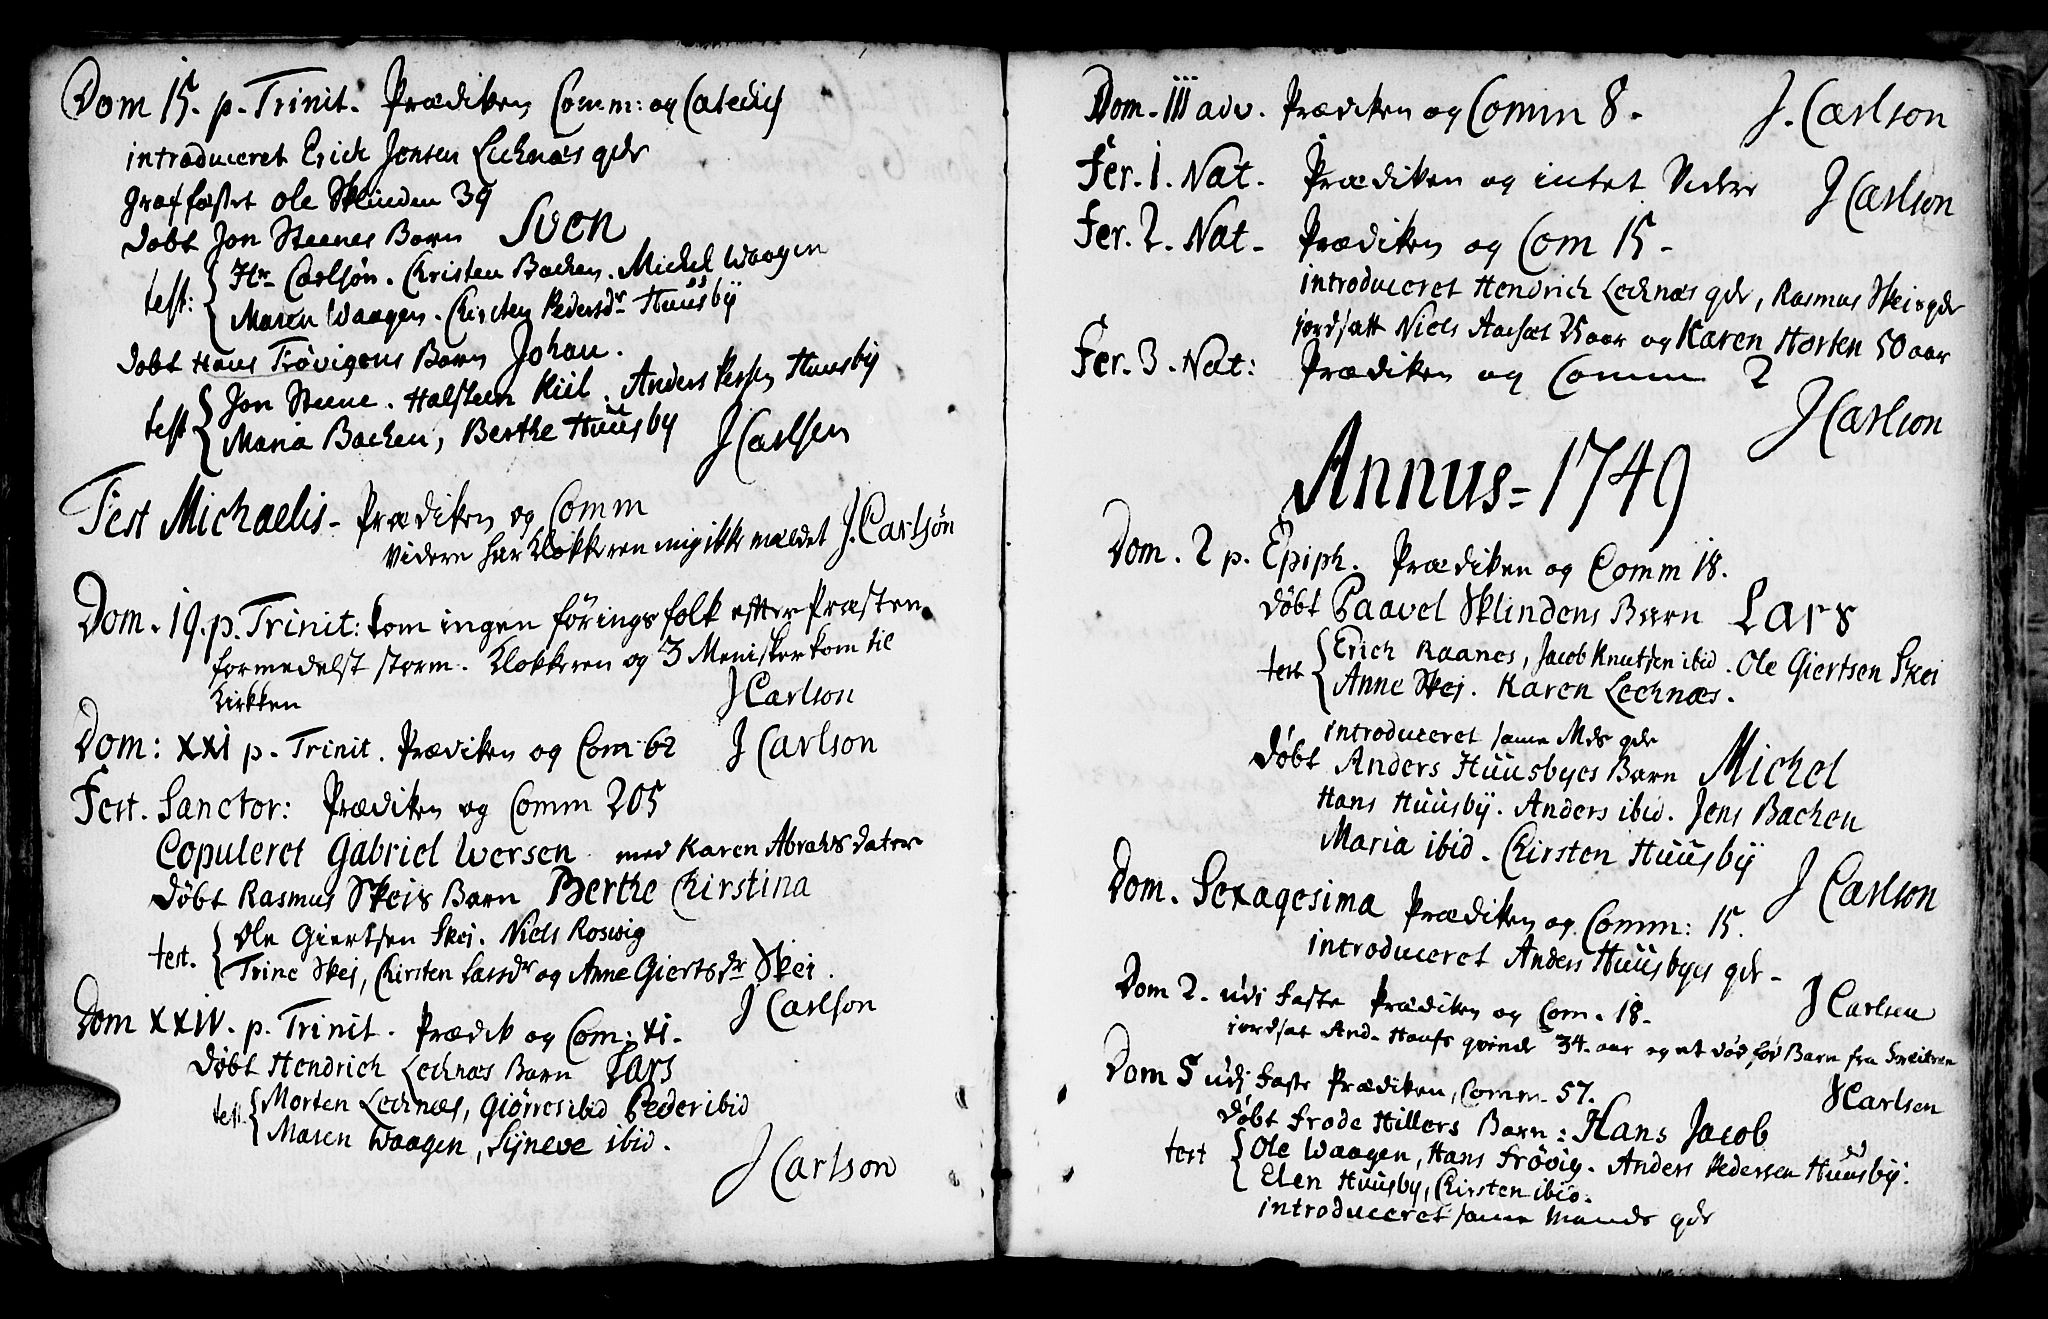 Dom 15. p. Trinit. Prædiken Comm: og Catechis
introduceret Erich Jensen Lecknæs qdr
graffæstet Ole Sklinden 39
døbt Jon Steenes Barn Sven
test: Hr Carlsøn. Christen Bachen. Michel Waagen
Maren Waagen. Chirsten Pedersdr Huusbÿ
døbt Hans Frøvigens Barn Johan.
test Jon Steene. Halsteen Kiil. Anders Persen Huusbÿ
Maria Bachen, Berthe Huusby
J Carlsen
Fest Michaelis - Prædiken og Comm
videre har Klokkeren mig ikke mældet J. Carlsøn
Dom. 19. p. Trinit: kom ingen förings folk efter Præsten
formedelst storm. Klokkeren og 3 Menisker kom til
Kirkken J Carlson
Dom: XXI p. Trinit. Prædiken og Com 62 J Carlson
Fest. Sanctor: Prædiken og Comm 205
Copuleret Gabriel Wersen med Karen Abrahs dater
døbt Rasmus Skeis Barn Berthe Chirstina
test. Ole Giertsen Skej. Niels Roswig
Trine Skej, Chirsten Larsdr og Anne Giertsdr Skei.
J Carlson
Dom XXIV. p. Trinit. Prædik og Com: XI.
døbt Hendrich Lecknæs Barn Lars
test. Morten Lecknæs, Giørres ibid Peder ibid
Maren Waagen, Sÿneve ibid.
J Carlson
Dom. III adv. Prædiken og Comm 8. J. Carlson
Fer. 1. Nat. Prædiken og intet Videre J Carlson
Fer. 2. Nat. Prædiken og Com 15.
introduceret Hendrich Lecknæs qdr, Rasmus Skeis qdr
jordsatt Niels Aarsæt 25 aar og Karen Horten 50 aar
Fer. 3. Nat: Prædiken og Comm 2
J Carlson
Annus - 1749
Dom. 2 p. Epiph. Prædiken og Comm 18.
døbt Paavel Sklindens Barn Lars
test Erich Raanes, Jacob Knutsen ibid. Ole Giertsen Skei
Anne Skej. Karen Lecknæs.
introduceret samme Mds qdr
døbt Anders Huusbyes Barn Michel
Hans Huusbÿ. Anders ibid. Jens Bachen
Maria ibid. Chirsten Huusbÿ
J Carlson
Dom. Sexagesima Prædiken og Comm: 15.
introduceret Anders Huusbyes qdr -
Dom 2. udi faste Prædiken og Com. 18. J Carlsen
iordsat And. qvinde 34. aar og et død fød Barn fra
Dom 5 udi faste Prædiken, Comm. 57. J Carlsen
døbt Frode Hillers Barn: Hans Jacob
test Ole Waagen, Hans Frøvig. Anders Pedersen Huusbÿ.
Elen Huusby, Chirsten ibid.
introduceret samme Mands qdr